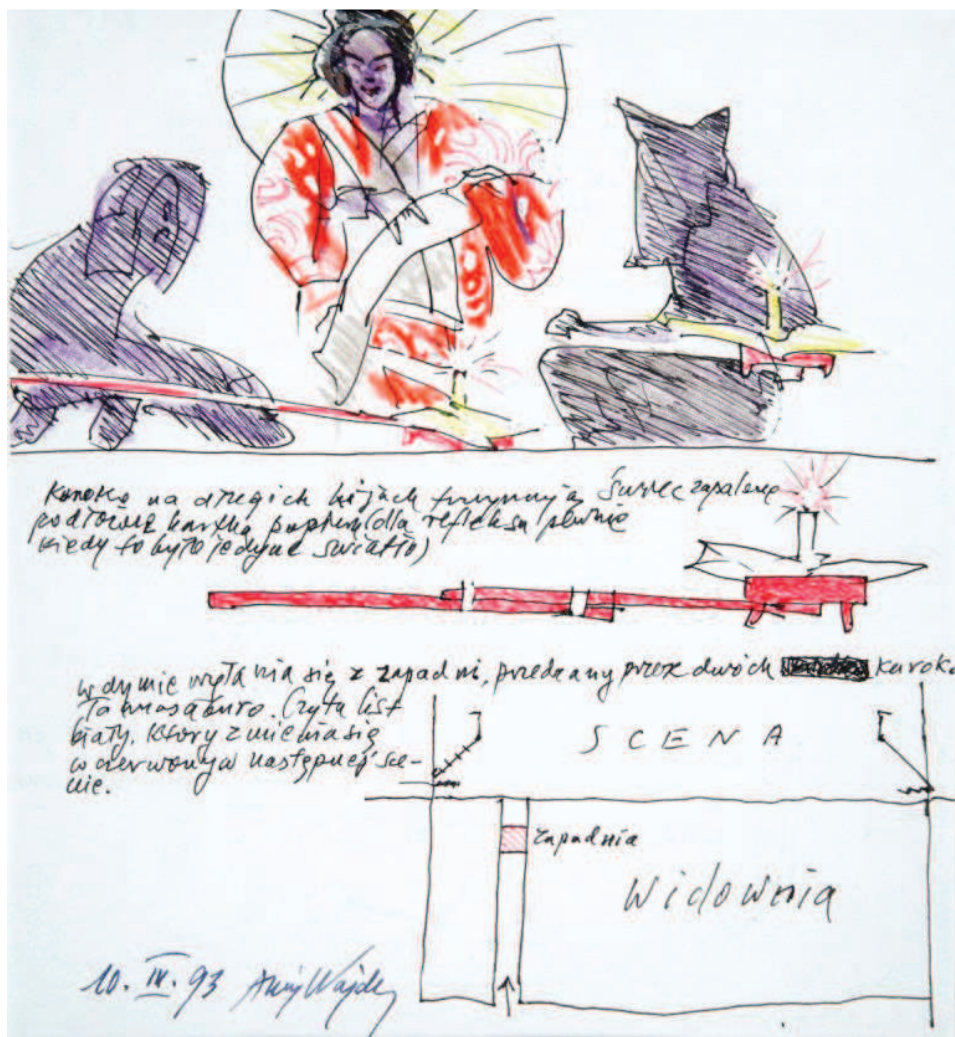 Kuroko na długich kijach trzymają świece zapalone
kartką papieru (dla refleksu pewnie
kiedy to było jedyne światło)
w dymie wyłania się z zapadni, przez dwóch kuroko
Tamasaburo. Czyta list
biały, który zmienia się
w czerwony w następnej sce-
nie.
SCENA
zapadnia
Widownia
10. IV. 93 Andrzej Wajda